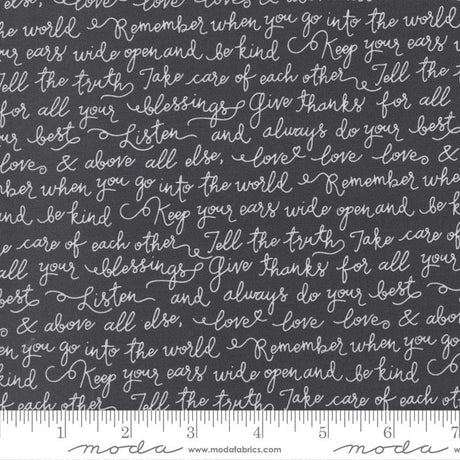 else, love love love & above all
the world Remember when you go into the world
your ears wide open and be kind Keep your ears w
Tell the truth Take care of each other Tell the tr
for all your blessings Give thanks for all
ur best Listen and always do your best
love & above all else, love love love &
mber when you go into the world Remember when
and be kind Keep your ears wide open and be k
e care of each other Tell the truth Take care
all your blessings Give thanks for all your
best Listen and always do your best
& above all else, love love love & a
en you go into the world Remember when you
kind Keep your ears wide open and be kind
of each other Tell the truth Take care of each ot
1 2 3 4 5 6 7
moda www.modafabrics.com moda